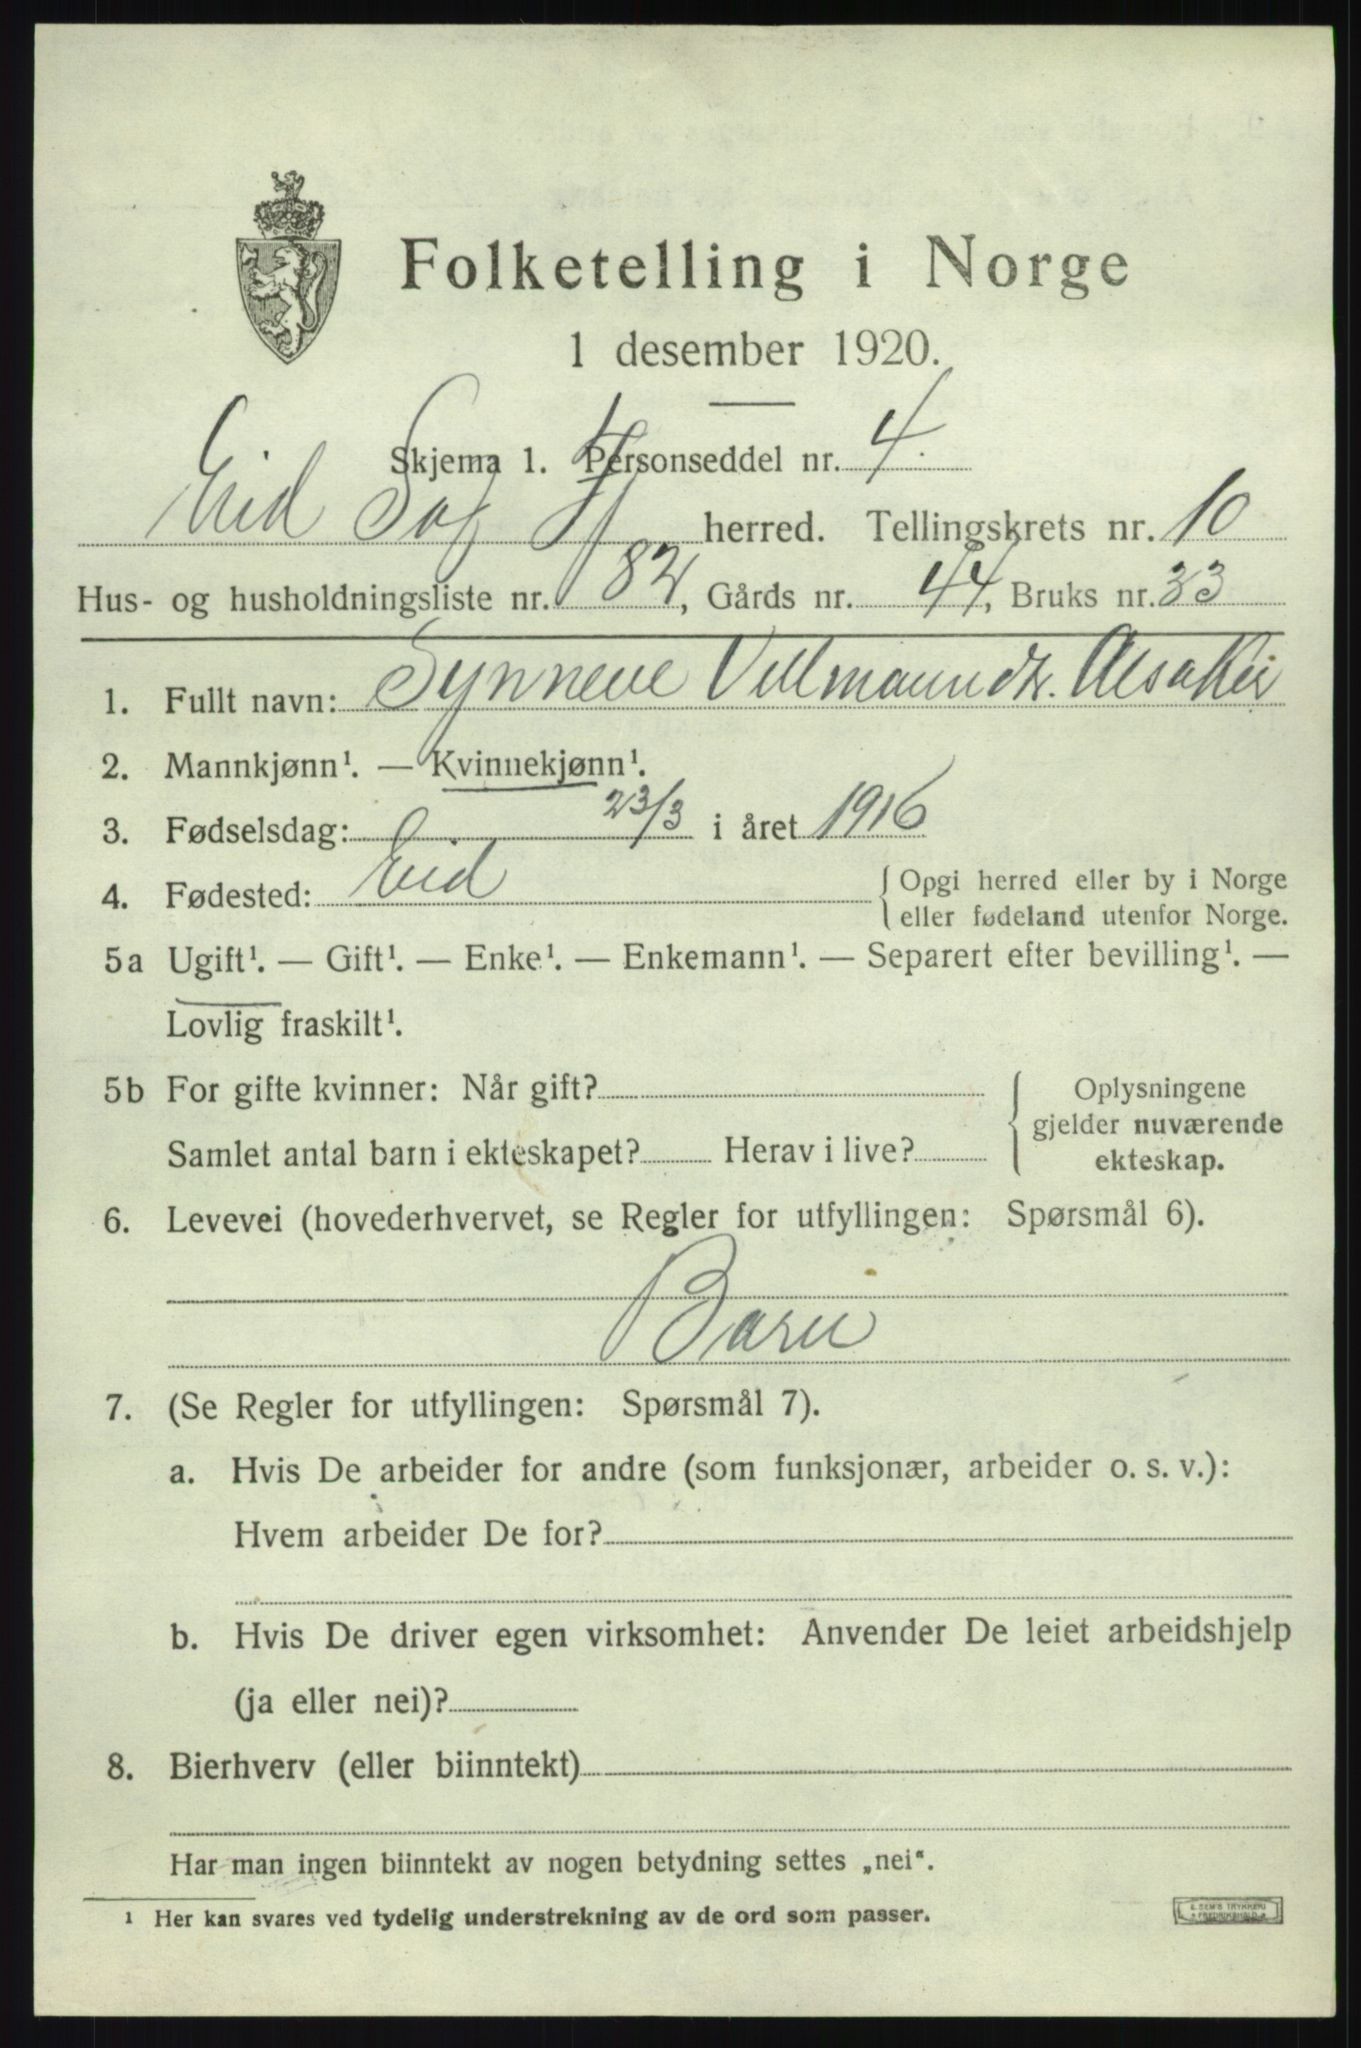 Folketelling i Norge
1 desember 1920.
Skjema 1. Personseddel nr. 4.
Eid herred. Tellingskrets nr. 10
Hus- og husholdningsliste nr. 82, Gårds nr. 44, Bruks nr. 33
1. Fullt navn: Synneve Villmanndtr. Alsaker
2. Mannkjønn¹. — Kvinnekjønn¹.
3. Fødselsdag: 23/3 i året 1916
4. Fødested: Eid { Opgi herred eller by i Norge
eller fødeland utenfor Norge.
5a Ugift¹. — Gift¹. — Enke¹. — Enkemann¹. — Separert efter bevilling¹. —
Lovlig fraskilt¹.
5b For gifte kvinner: Når gift? { Oplysningene
gjelder nuværende
Samlet antal barn i ekteskapet? Herav i live? ekteskap.
6. Levevei (hovederhvervet, se Regler for utfyllingen: Spørsmål 6).
Barn
7. (Se Regler for utfyllingen: Spørsmål 7).
a. Hvis De arbeider for andre (som funksjonær, arbeider o. s. v.):
Hvem arbeider De for?
b. Hvis De driver egen virksomhet: Anvender De leiet arbeidshjelp
(ja eller nei)?
8. Bierhverv (eller biinntekt)
Har man ingen biinntekt av nogen betydning settes „nei“.
¹ Her kan svares ved tydelig understrekning av de ord som passer.
E. SEM'S TRYKKERI
FREDRIKSHALD